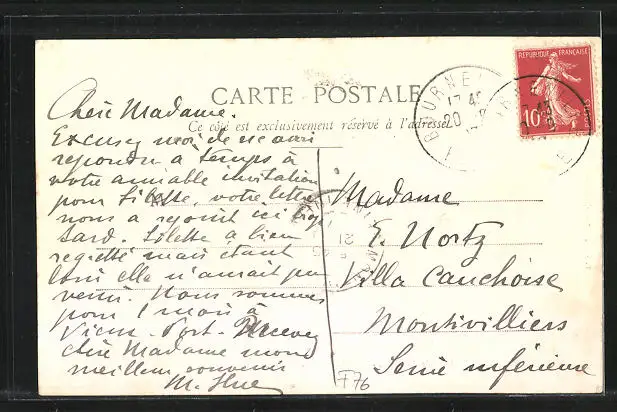 CARTE POSTALE
Ce côté est exclusivement réservé à l'adresse
REPUBLIQUE FRANÇAISE
10
POSTES
17 45
20
Chère Madame.
Excusez moi de ne avoir
repondu à temps à
votre amiable invitation
pour Lilette, votre lettre
nous a rejoint ici trop
tard. Lilette a bien
regretté mais étant
loin elle n'aurait pu
venir. Nous sommes
pour 1 mois à
Vieux-Port. Recevez
chère Madame mon
meilleur souvenir
M. Hue
Madame
E. Nortz
Villa Cauchoise
Montivilliers
Seine inférieure
F76